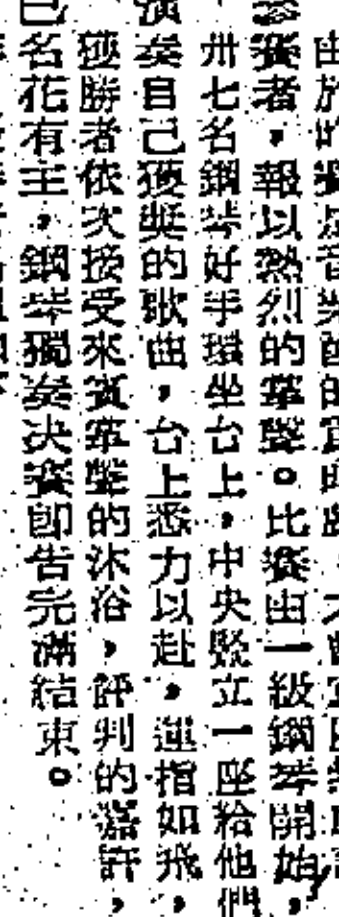 參賽者，報以熱烈的掌聲。比賽由一級鋼琴開始，
卅七名鋼琴好手環坐台上，中央豎立一座給他們
演奏自己獲獎的歌曲，台上悉力以赴，運指如飛，
獲勝者依次接受來賓掌聲的沐浴，評判的嘉許，
名花有主，鋼琴獨奏決賽即告完滿結束。